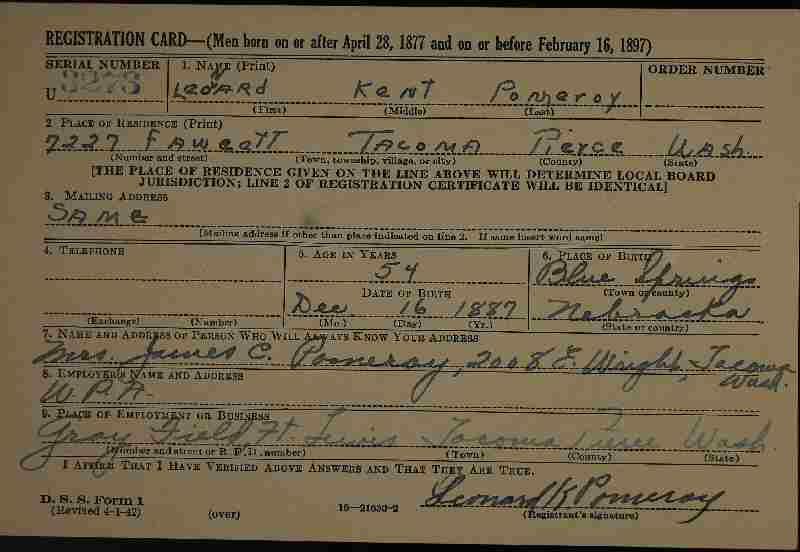 REGISTRATION CARD—(Men born on or after April 28, 1877 and on or before February 16, 1897)
SERIAL NUMBER 1. NAME (Print) ORDER NUMBER
U 3273 LEONARD KENT POMEROY
(First) (Middle) (Last)
2. PLACE OF RESIDENCE (Print)
7227 FAWCETT TACOMA PIERCE WASH.
(Number and street) (Town, township, village, or city) (County) (State)
[THE PLACE OF RESIDENCE GIVEN ON THE LINE ABOVE WILL DETERMINE LOCAL BOARD
JURISDICTION; LINE 2 OF REGISTRATION CERTIFICATE WILL BE IDENTICAL]
3. MAILING ADDRESS
SAME
[Mailing address if other than place indicated on line 2. If same insert word same]
4. TELEPHONE 5. AGE IN YEARS 6. PLACE OF BIRTH
54 Blue Springs
DATE OF BIRTH (Town or county)
Dec 16 1887 Nebraska
(Exchange) (Number) (Mo.) (Day) (Yr.) (State or country)
7. NAME AND ADDRESS OF PERSON WHO WILL ALWAYS KNOW YOUR ADDRESS
Mrs. James C. Pomeroy, 2008 E. Wright, Tacoma
Wash.
8. EMPLOYER'S NAME AND ADDRESS
W.P.A.
9. PLACE OF EMPLOYMENT OR BUSINESS
Gray Field, Ft. Lewis Tacoma Pierce Wash.
(Number and street or R. F. D. number) (Town) (County) (State)
I AFFIRM THAT I HAVE VERIFIED ABOVE ANSWERS AND THAT THEY ARE TRUE.
D. S. S. Form 1
(Revised 4-1-42) (over) 16—21630-2 Leonard K Pomeroy
(Registrant's signature)